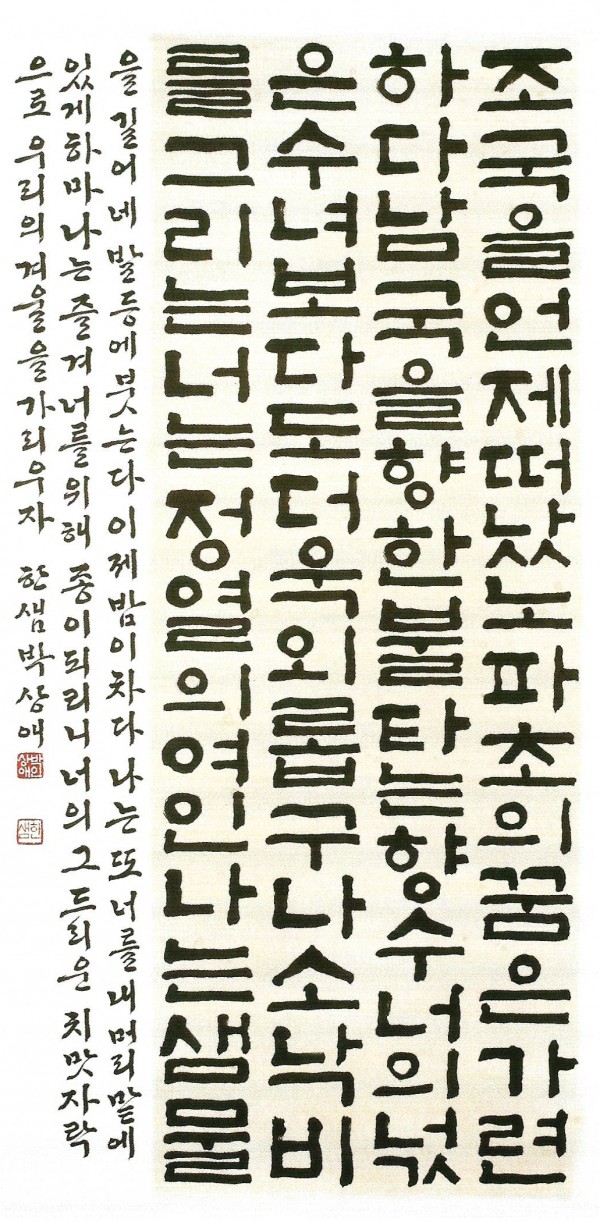 조국을언제떠났노파초의꿈은가련
하다남국을향한불타는향수너의넋
은수녀보다도더욱외롭구나소낙비
를그리는너는정열의여인나는샘물
을 길어 네 발등에 붓는다 이제 밤이 차다 나는 또 너를 내 머리맡에
있게 하마 나는 즐겨 너를 위해 종이 되리니 너의 그 드리운 치맛자락
으로 우리의 겨울을 가리우자 한샘 박상애
한샘